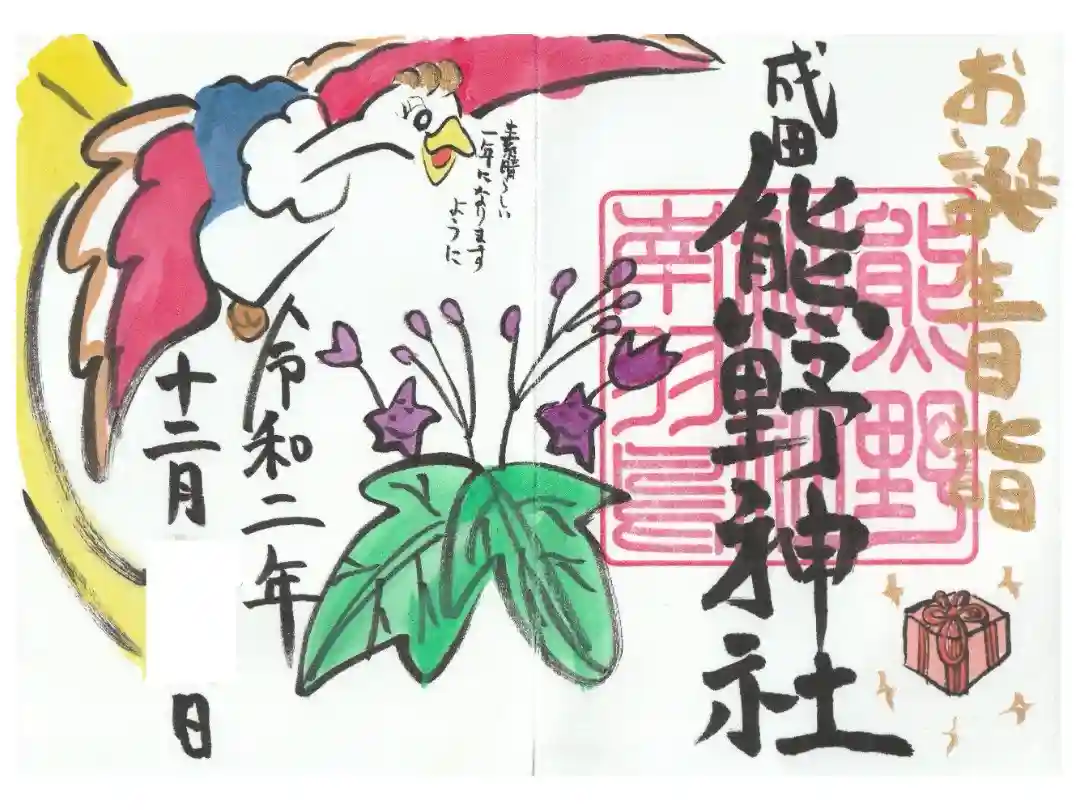 お誕生日詣
成田
熊野神社
熊野
神社
南羽鳥
素晴らしい
一年になります
ように
令和二年
十二月
日